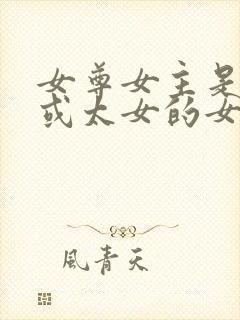 女尊女主是
或太女的女
風青天